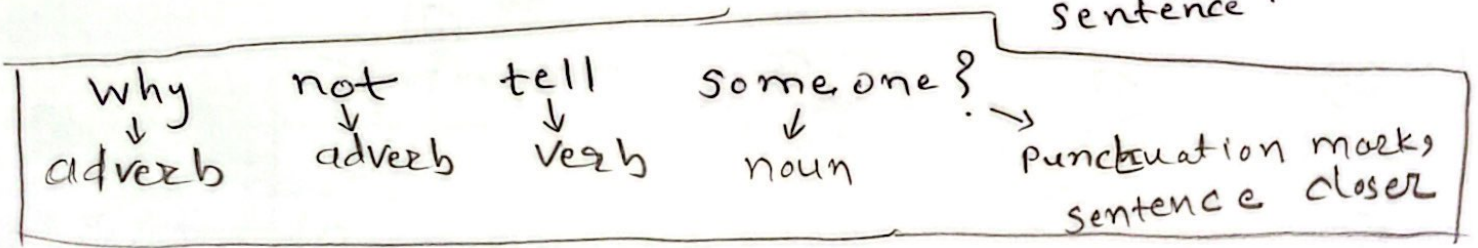 sentence
why not tell someone?
↓ ↓ ↓ ↓ →
adverb adverb verb noun punctuation mark,
sentence closer